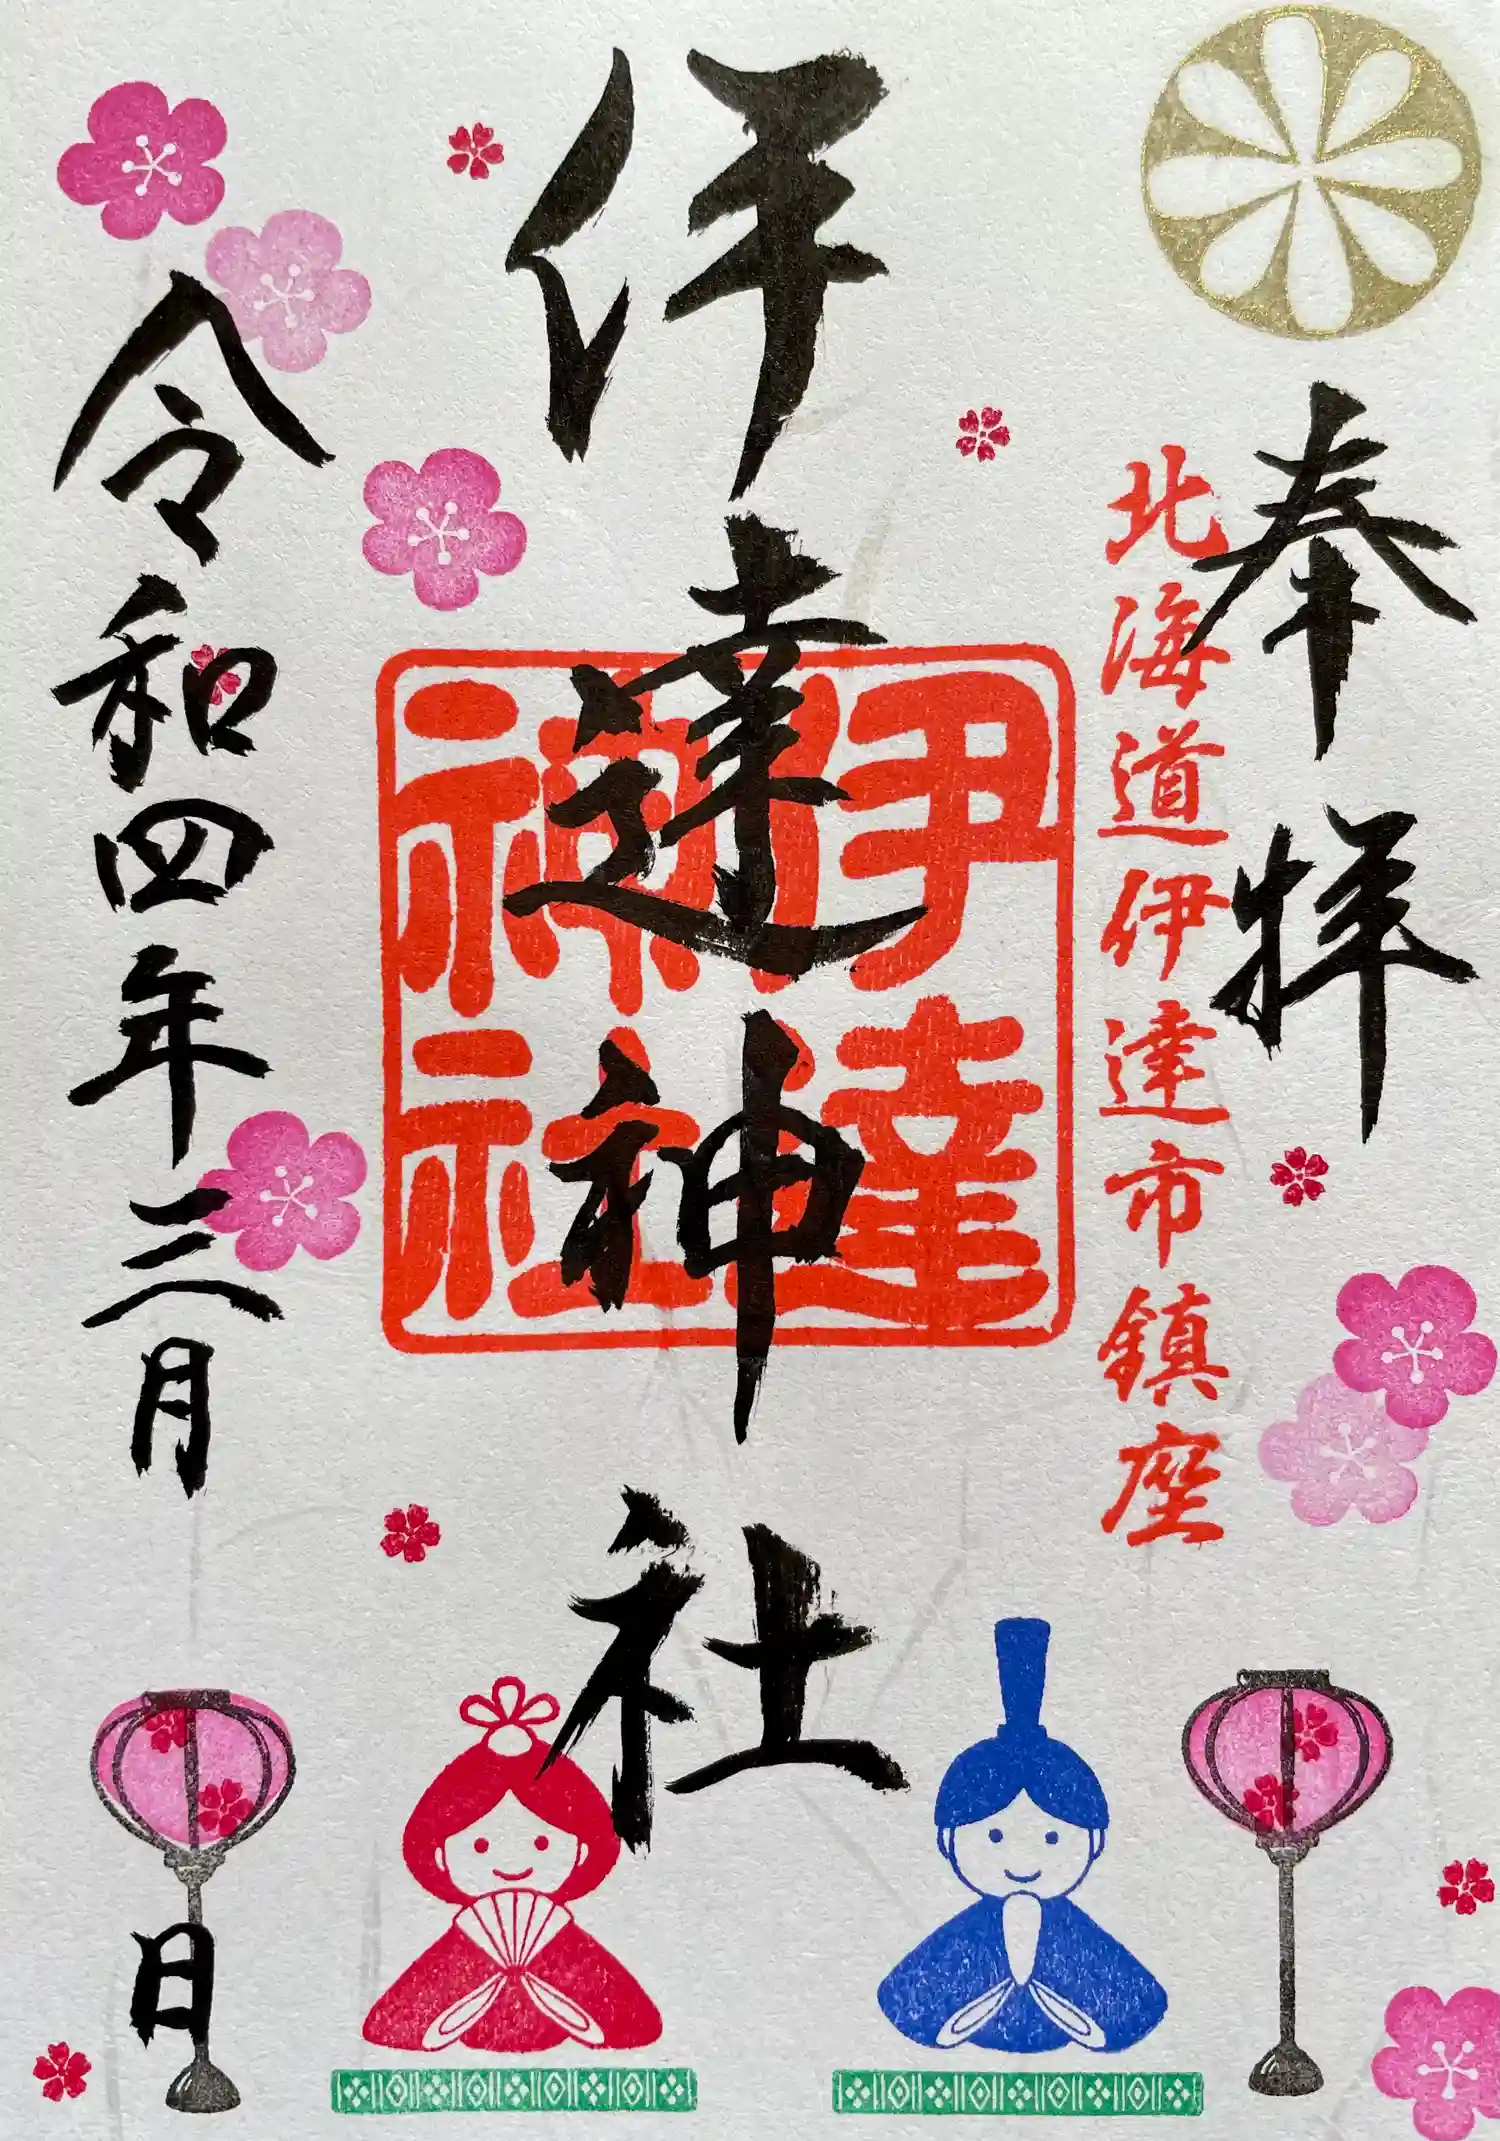 奉拝
北海道伊達市鎮座
伊達神社
伊達
神社
令和四年三月 日